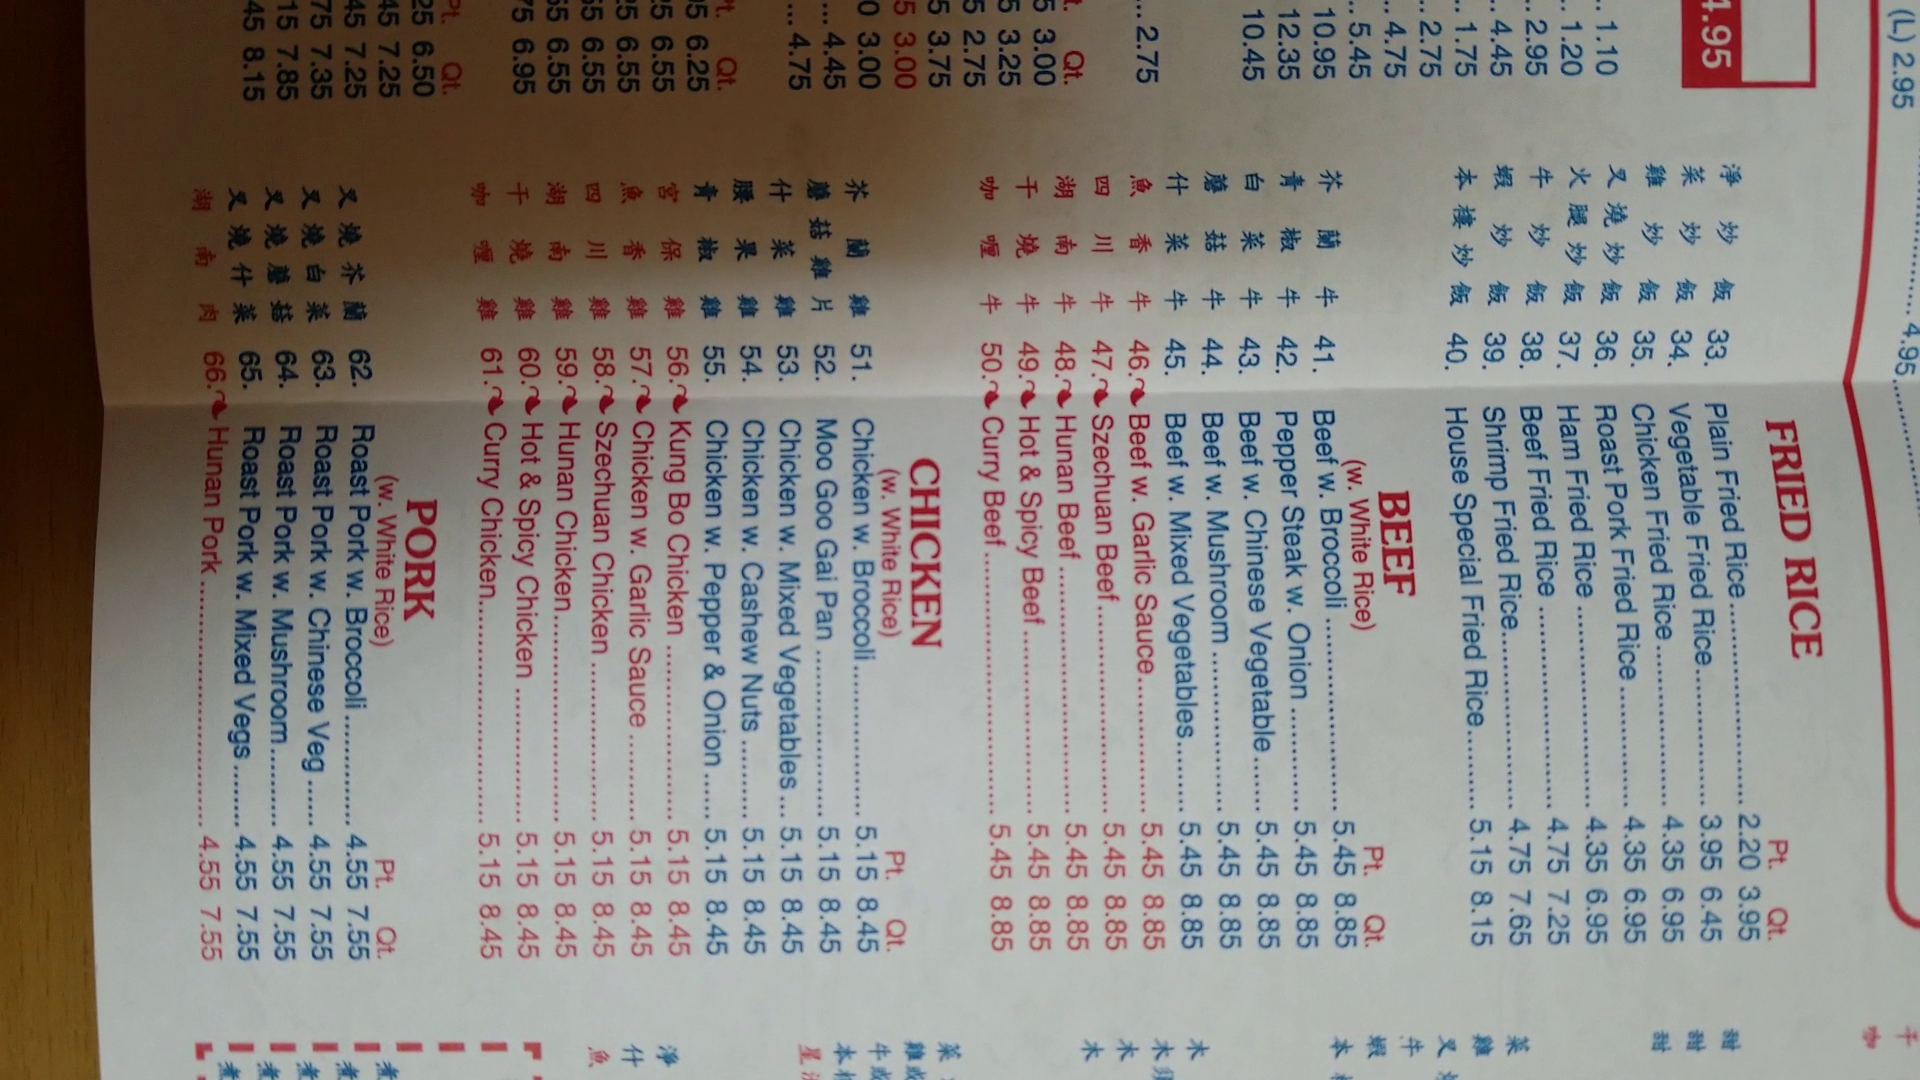 (L) 2.95
4.95
4.95
FRIED RICE
Pt. Qt.
淨炒飯 33. Plain Fried Rice 2.20 3.95
菜炒飯 34. Vegetable Fried Rice 3.95 6.45
雞炒飯 35. Chicken Fried Rice 4.35 6.95
叉燒炒飯 36. Roast Pork Fried Rice 4.35 6.95
火腿炒飯 37. Ham Fried Rice 4.35 6.95
牛炒飯 38. Beef Fried Rice 4.75 7.25
蝦炒飯 39. Shrimp Fried Rice 4.75 7.65
本樓炒飯 40. House Special Fried Rice 5.15 8.15
BEEF
(w. White Rice) Pt. Qt.
芥蘭牛 41. Beef w. Broccoli 5.45 8.85
青椒牛 42. Pepper Steak w. Onion 5.45 8.85
白菜牛 43. Beef w. Chinese Vegetable 5.45 8.85
蘑菇牛 44. Beef w. Mushroom 5.45 8.85
什菜牛 45. Beef w. Mixed Vegetables 5.45 8.85
魚香牛 46. Beef w. Garlic Sauce 5.45 8.85
四川牛 47. Szechuan Beef 5.45 8.85
湖南牛 48. Hunan Beef 5.45 8.85
干燒牛 49. Hot & Spicy Beef 5.45 8.85
咖喱牛 50. Curry Beef 5.45 8.85
CHICKEN
(w. White Rice) Pt. Qt.
芥蘭雞 51. Chicken w. Broccoli 5.15 8.45
蘑菇雞片 52. Moo Goo Gai Pan 5.15 8.45
什菜雞 53. Chicken w. Mixed Vegetables 5.15 8.45
腰果雞 54. Chicken w. Cashew Nuts 5.15 8.45
青椒雞 55. Chicken w. Pepper & Onion 5.15 8.45
宮保雞 56. Kung Bo Chicken 5.15 8.45
魚香雞 57. Chicken w. Garlic Sauce 5.15 8.45
四川雞 58. Szechuan Chicken 5.15 8.45
湖南雞 59. Hunan Chicken 5.15 8.45
干燒雞 60. Hot & Spicy Chicken 5.15 8.45
咖喱雞 61. Curry Chicken 5.15 8.45
PORK
(w. White Rice) Pt. Qt.
叉燒芥蘭 62. Roast Pork w. Broccoli 4.55 7.55
叉燒白菜 63. Roast Pork w. Chinese Veg 4.55 7.55
叉燒蘑菇 64. Roast Pork w. Mushroom 4.55 7.55
叉燒什菜 65. Roast Pork w. Mixed Vegs 4.55 7.55
湖南肉 66. Hunan Pork 4.55 7.55
1.10
1.20
2.95
4.45
1.75
2.75
4.75
5.45
10.95
12.35
10.45
2.75
Qt.
3.00
3.25
2.75
3.75
3.00
3.00
4.45
4.75
Qt.
6.25
6.55
6.55
6.55
6.55
6.95
Pt. Qt.
25 6.50
45 7.25
45 7.25
75 7.35
15 7.85
45 8.15